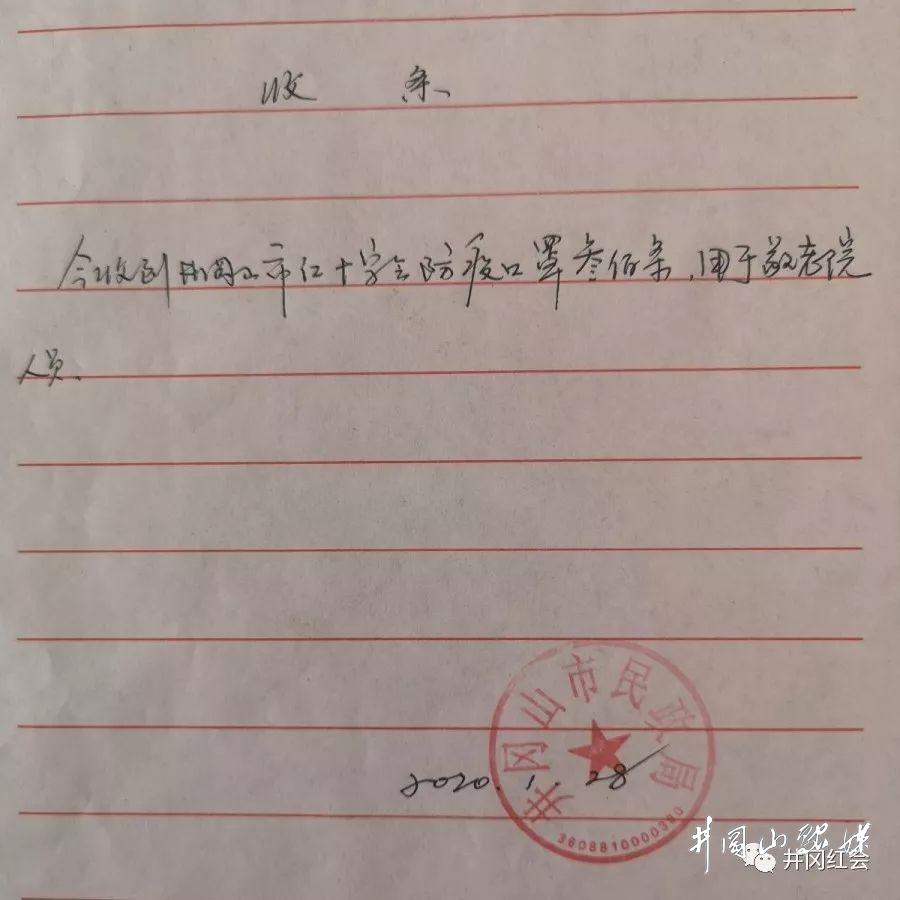 收 条
今收到井冈山市红十字会防疫口罩叁佰条，用于敬老院
人员.
井冈山市民政局
2020.1.28
井冈山
井冈红会